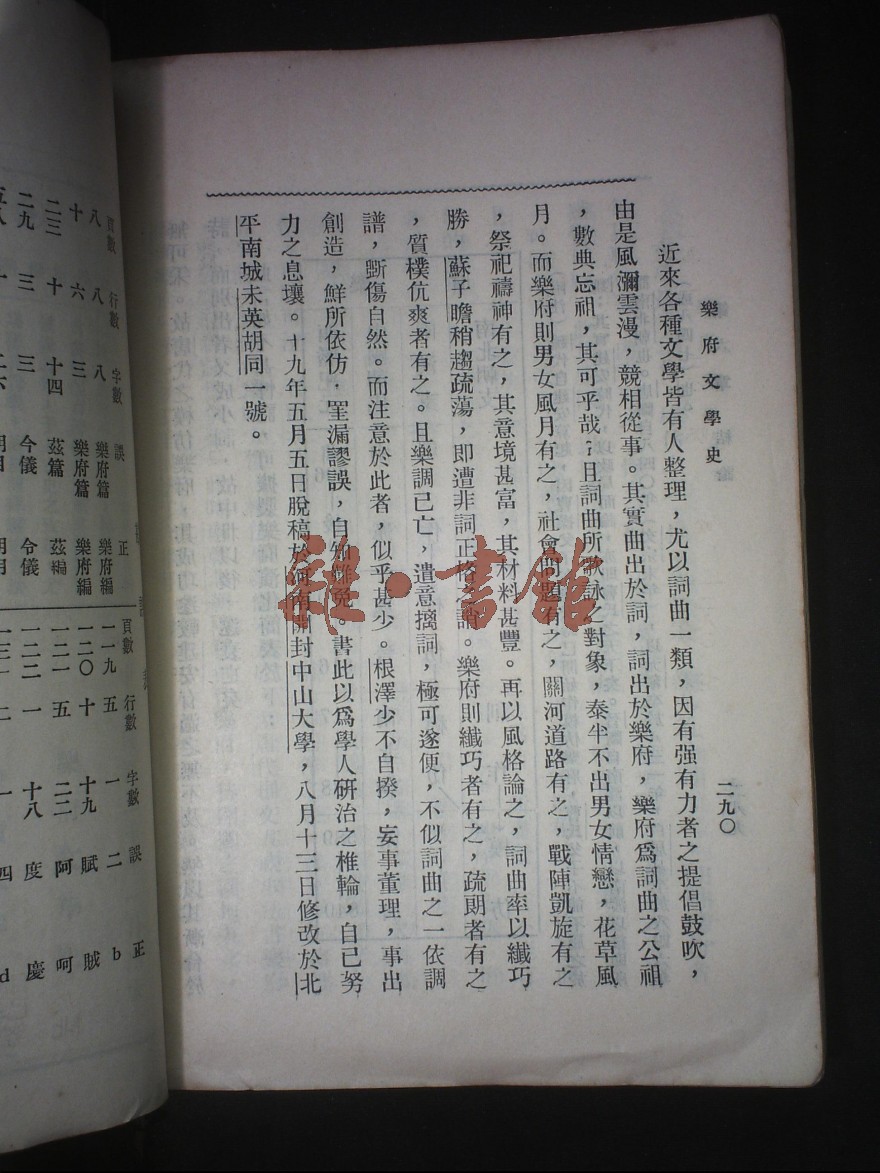 樂府文學史
二九〇
近來各種文學皆有人整理，尤以詞曲一類，因有强有力者之提倡鼓吹，
由是風瀰雲漫，競相從事。其實曲出於詞，詞出於樂府，樂府爲詞曲之公祖
，數典忘祖，其可乎哉；且詞曲所歌詠之對象，泰半不出男女情戀，花草風
月。而樂府則男女風月有之，社會問題有之，關河道路有之，戰陣凱旋有之
，祭祀禱神有之，其意境甚富，其材料甚豐。再以風格論之，詞曲率以纖巧
勝，蘇子瞻稍趨疏蕩，即遭非詞正格之誚。樂府則纖巧者有之，疏朗者有之
，質樸伉爽者有之。且樂調已亡，遣意摛詞，極可遂便，不似詞曲之一依調
譜，斲傷自然。而注意於此者，似乎甚少。根澤少不自揆，妄事董理，事出
創造，鮮所依仿，罣漏謬誤，自知難免。書此以爲學人研治之椎輪，自己努
力之息壤。十九年五月五日脫稿於河南開封中山大學，八月十三日修改於北
平南城未英胡同一號。
雜·書館
頁數 行數 字數 誤 正
八 八 八 樂府篇 樂府編
十 六 三 樂府篇 樂府編
二三 十 十四 茲篇 茲編
二九 三 三 令儀 令儀
頁數 行數 字數 誤 正
一一九 五 一 二 b
一二〇 十 十九 賦 賊
一二一 五 二二 阿 呵
一二二 一 十八 度 慶
一 四 d